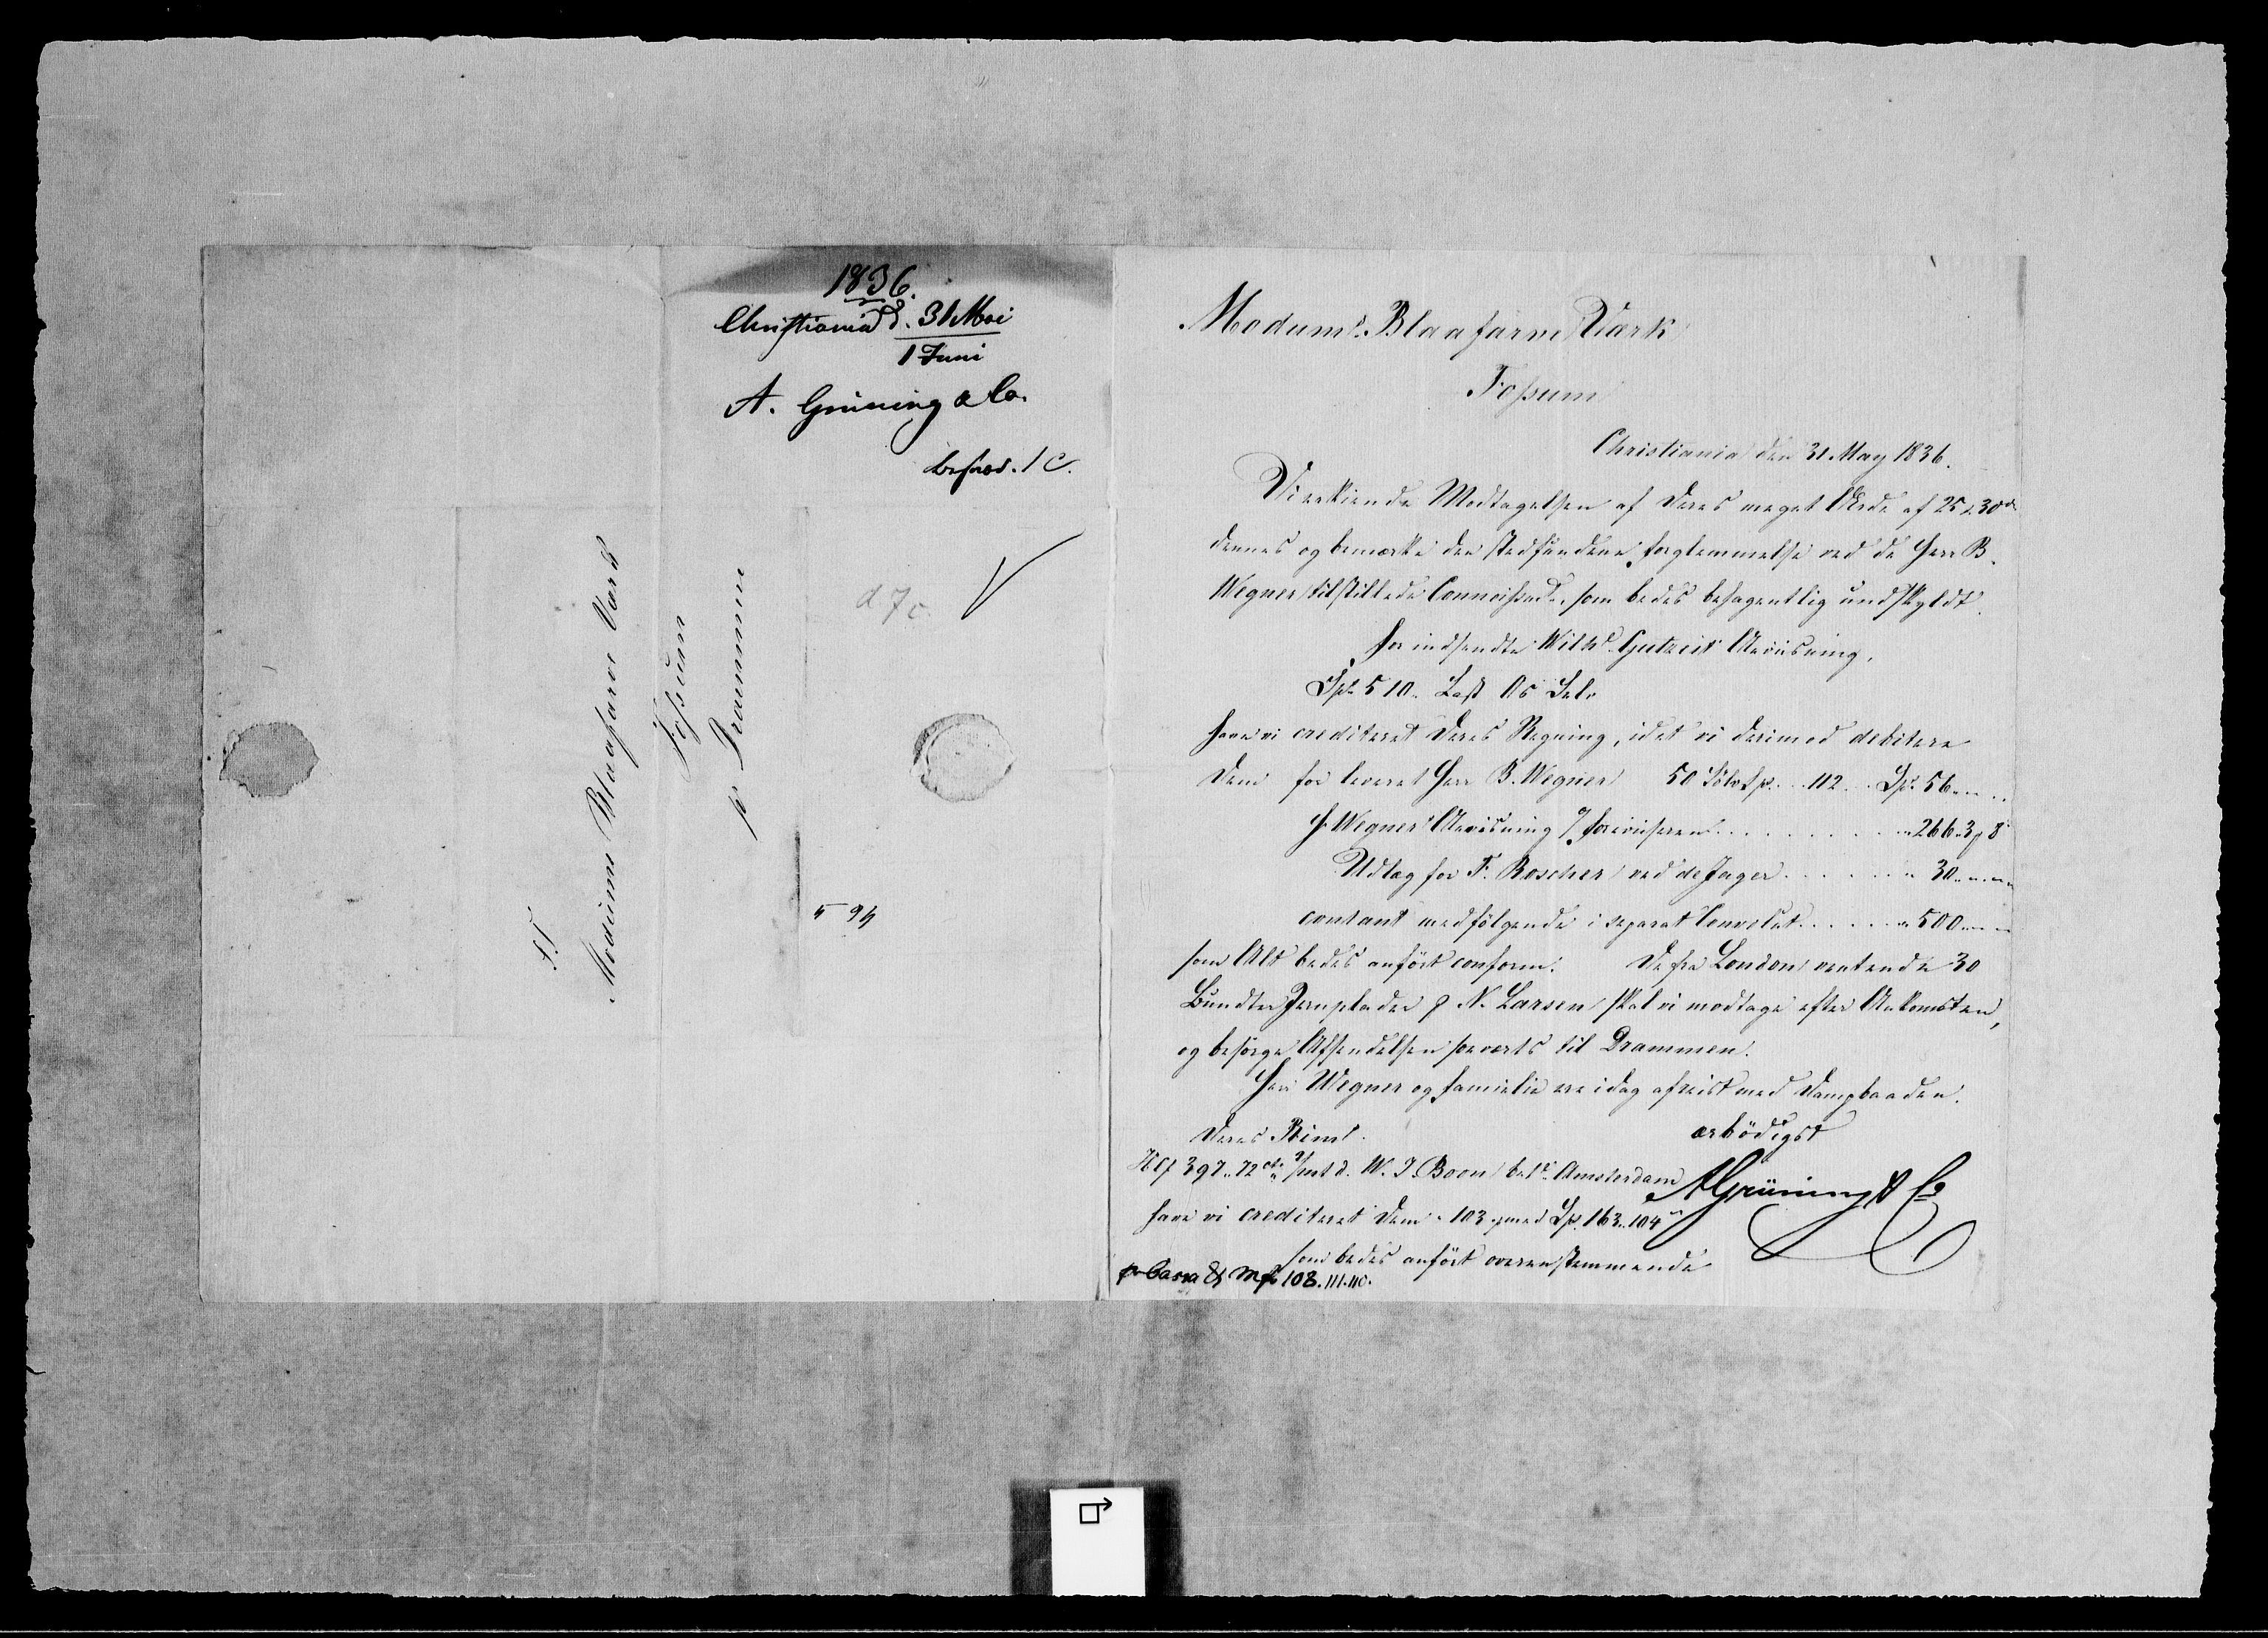 1836.
Christiania d. 31 Mai
1 Juni
A. Grüning & Co.
besvar. 1 C.
d 7 c.
S.T.
Modums Blaafarve Værk
Fossum
pr Drammen
5 94
Modums Blaafarve Værk
Fossum
Christiania den 31 May 1836.
Vi erkiende Modtagelsen af Deres meget Ærede af 25 & 30te
dennes og bemærke den stedfundene forglemmelse ved de Herr B.
Wegner tilstillede som bedes behagentlig undskyldt.
for indsendte Wilhd Gutzeit Anviisning,
Spd 510. Last
have vi crediteret Deres Regning, idet vi derimod debitere
Dem for leveret Herr B. Wegner 50 Sølv Sp. . . 112 . . Sp. 56
H. Wegners Anviisning . . . . . 266 . 3 ƒ 8
Udlæg for F. Roscher ved de Jager . . . . . 30
contant medfölgende i separat Convolut . . . . . 500
som Alt bedes anfört conform. De fra London ventende 30
Bundter Jernplader p N. Larsen skal vi modtage efter Ankomsten,
og besörge Afsendelsen til Drammen.
Herr Wegner og familie ere idag afreist med Dampbaaden.
Deres Rims.
ærbödigst
Hƒ 397 . 72 cts W. J. Boon Amsterdam
A Grüning & Co
have vi crediteret Dem 103 med Sp. 163 . 104
som bedes anfört overensstemmende
pr Cassa & 108 . 111 . 110 .